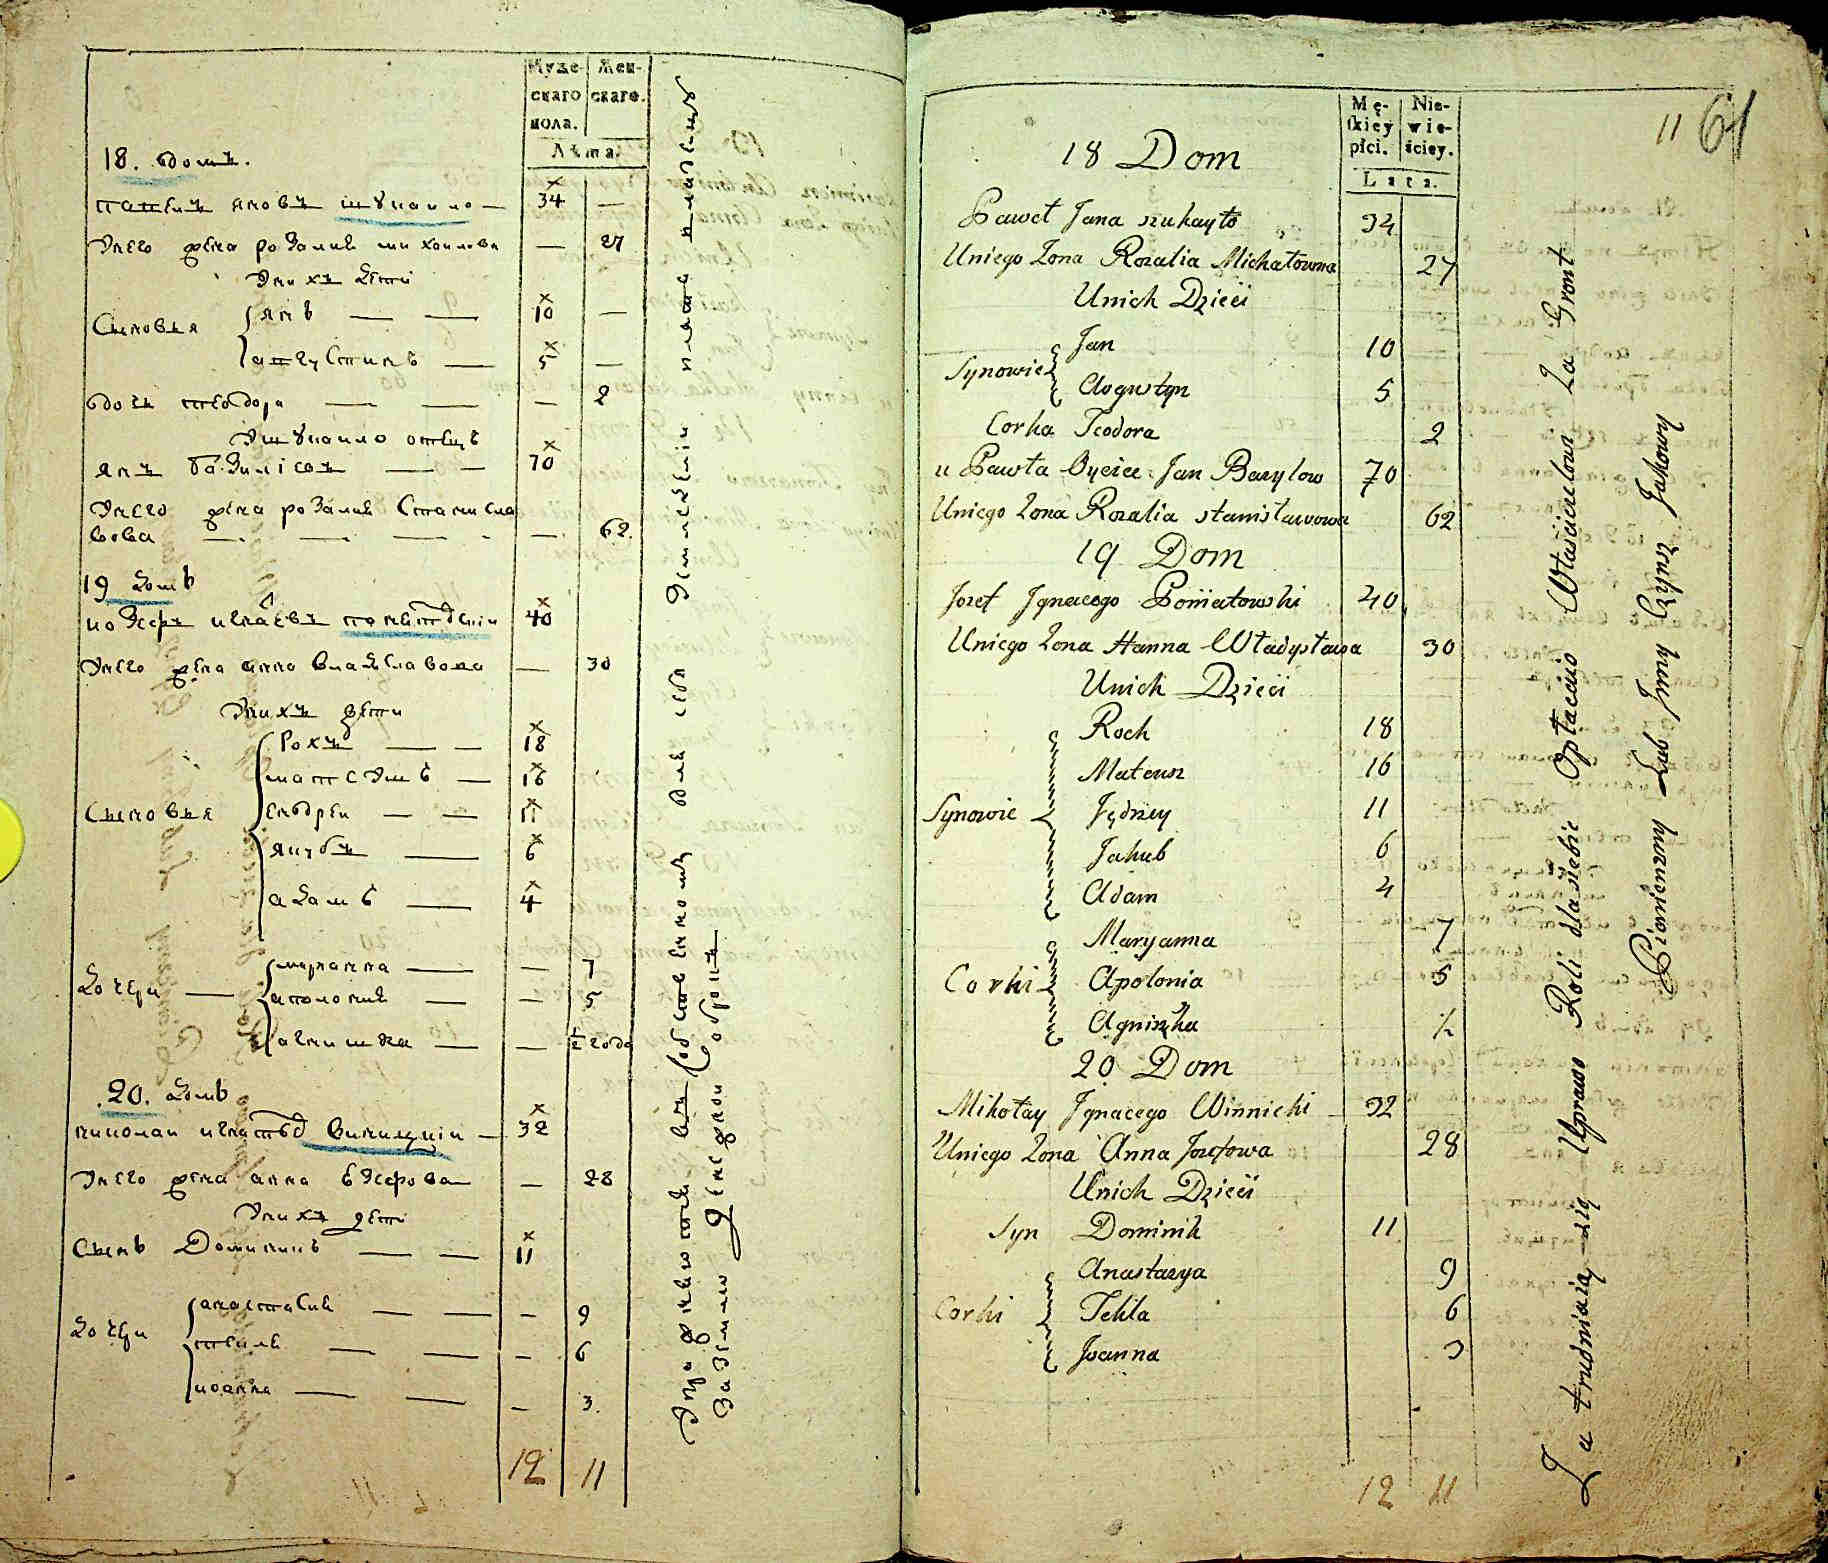 Муже-
скаго
пола.
Жен-
скаго.
Лѣта.
18. домъ.
павелъ яновъ шукайло — 34 —
Унего жена розалия михайлова — 27
Унихъ дѣти
Сыновья
янъ — — 10 —
августинъ — 5 —
дочь теодора — — — 2
янъ базилісовъ — — 70
Унего жена розалия Станисла
вова — — — — 62.
19 домъ
40
Унего жена анна владиславова — 30
Унихъ дети
Сыновья
Рохъ — — 18
— 16
ендрей — — 11
якубъ — 6
адамъ — 4
дочери —
марианна — — 7
аполония — — 5
агнишка — — ½ года
.20. домъ
николай 32
Унего жена анна — 28
Унихъ дети
Сынъ Доминикъ — — 11
дочери
анастазия — — — 9
текля — — — 6
иоанна — — — 3.
12 11
Mę-
skiey
płci.
Nie-
wie-
ściey.
Lata.
11 61
18 Dom
Paweł Jana szukayło 34
Uniego Zona Rozalia Michałowna 27
Unich Dzieci
Synowie
Jan 10
Augustyn 5
Corka Teodora 2
u Pawła Oyciec Jan Bazylow 70
Uniego Zona Rozalia stanisławowa 62
19 Dom
Jozef Jgnacego Poniatowski 40
Uniego Zona Hanna Władysława 30
Unich Dzieci
Synowie
Roch 18
Mateusz 16
Jędrzey 11
Jakub 6
Adam 4
Corki
Maryanna 7
Apolonia 5
Agniszka ½
20 Dom
Mikołay Jgnacego Winnicki 32
Uniego Zona Anna Jozefowa 28
Unich Dzieci
Syn Dominik 11
Corki
Anastazya 9
Tekla 6
Joanna 3
12 11
Zatrudniaią się Uprawo Roli dla siebie Opłacaio Właścicielowi Za Gront
Pionienzny Lub Jnny Czynsz Jakowy